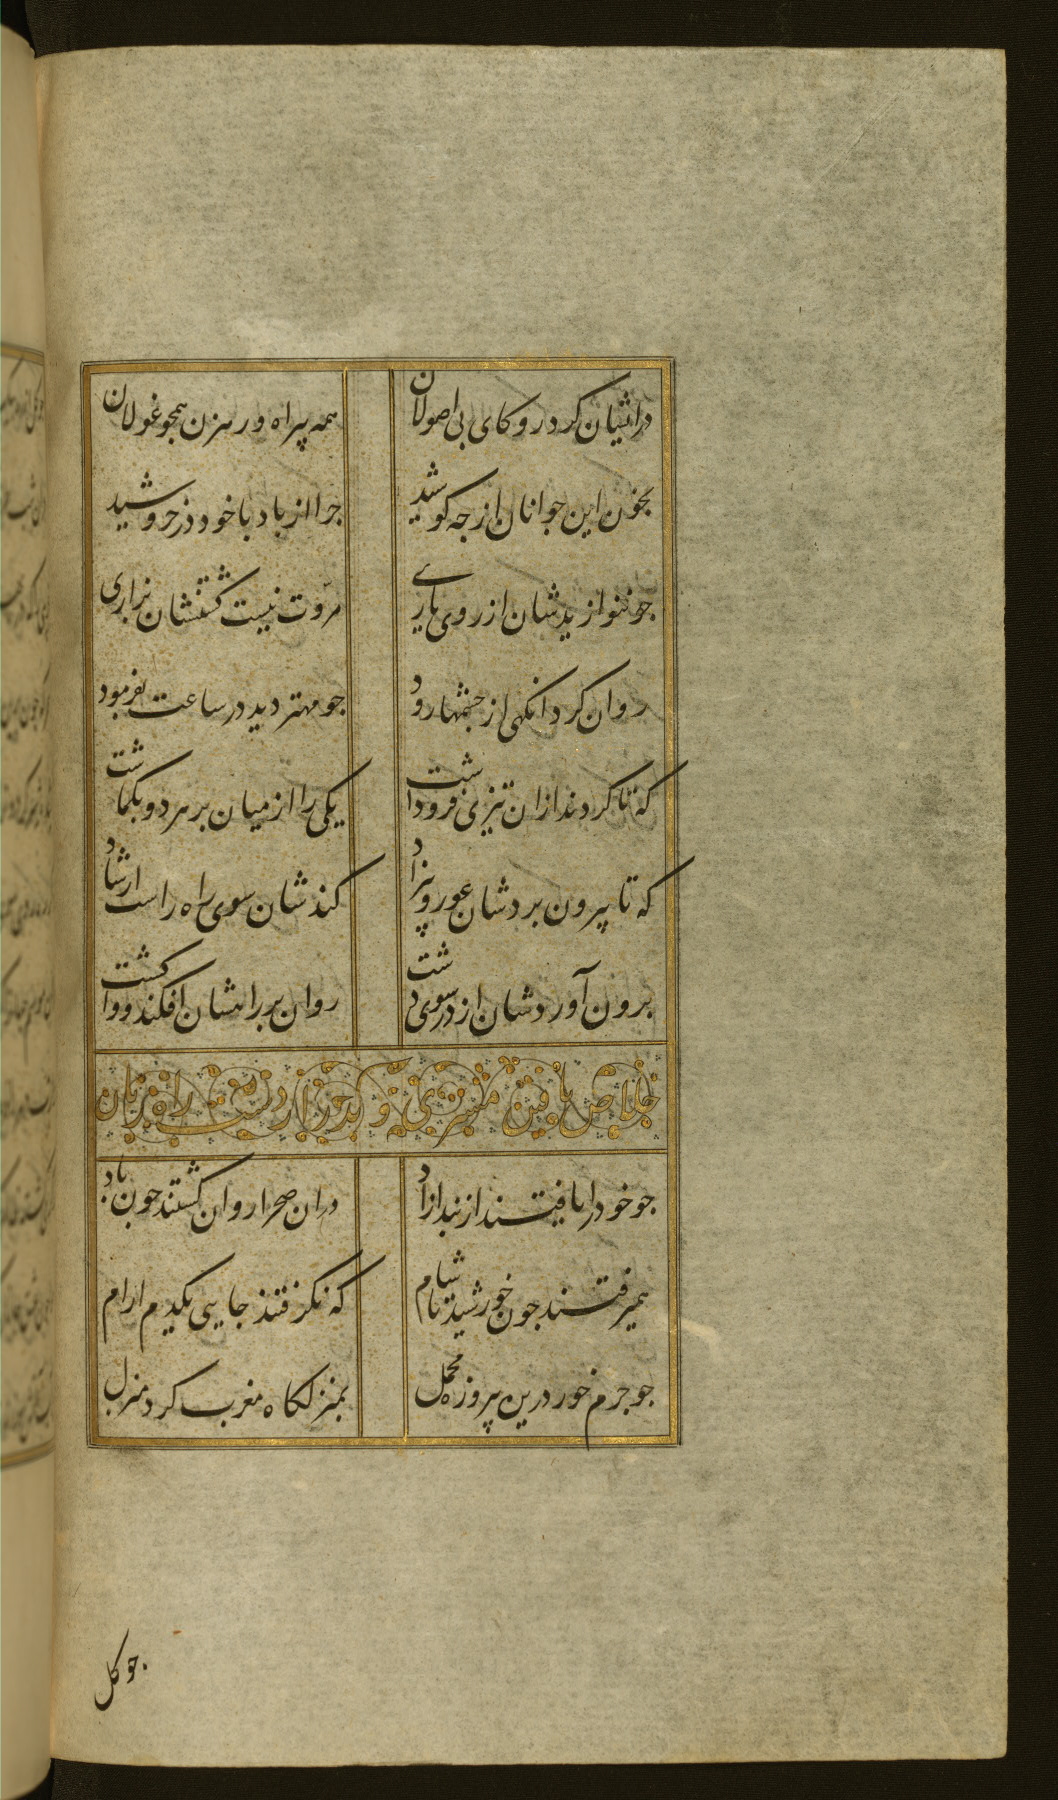 در ایشان کرد رو کای بی اصولان همه بیراه و رهزن همجو غولان
بخون این جوانان از جه کوشید جرا از باد با خود در خروشید
جو ننوازیدشان از روی یاری مروت نیست کشتنشان بزاری
روان کرد انکهی از جشمها رود جو مهتر دید در ساعت بفرمود
که تا کردند ازان تیزی فروداشت یکی را از میان بر هر دو بکماشت
که تا بیرون بردشان عور و بیزاد کندشان سوی راه راست ارشاد
برون آوردشان از در سوی دشت روان بر راهشان افکند و واکشت
خلاص یافتن مشتری و بدر از دست راه زنان
جو خود را یافتند از بند ازاد دران صحرا روان کشتند جون باد
همیرفتند جون خورشید تا شام که نکرفتند جایی یکدم ارام
جو جرم خور درین پیروزه محمل بمنزلکاه مغرب کرد منزل
جو کل